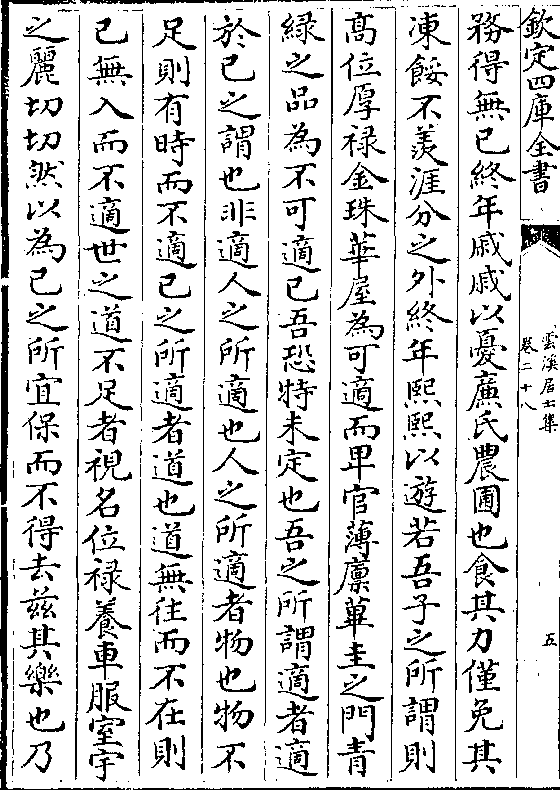 欽定四庫全書
雲溪居士集
卷二十八
五
務得無已終年戚戚以憂廉氏農圃也食其力僅免其
凍餒不羨涯分之外終年熙熙以遊若吾子之所謂則
髙位厚禄金珠華屋為可適而卑官薄廪蓽圭之門青
緑之品為不可適已吾恐特未定也吾之所謂適者適
於已之謂也非適人之所適也人之所適者物也物不
足則有時而不適已之所適者道也道無徃而不在則
已無入而不適世之道不足者視名位禄養車服室宇
之麗切切然以為已之所宜保而不得去兹其樂也乃